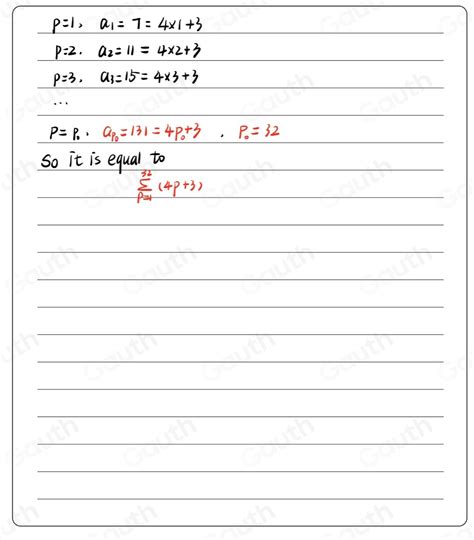 p=1, a₁=7=4×1+3
p=2. a₂=11=4×2+3
p=3, a₃=15=4×3+3
...
P=P₀, aₚ₀=131=4p₀+3 , P₀=32
So it is equal to
32
Σ (4p+3)
P=1